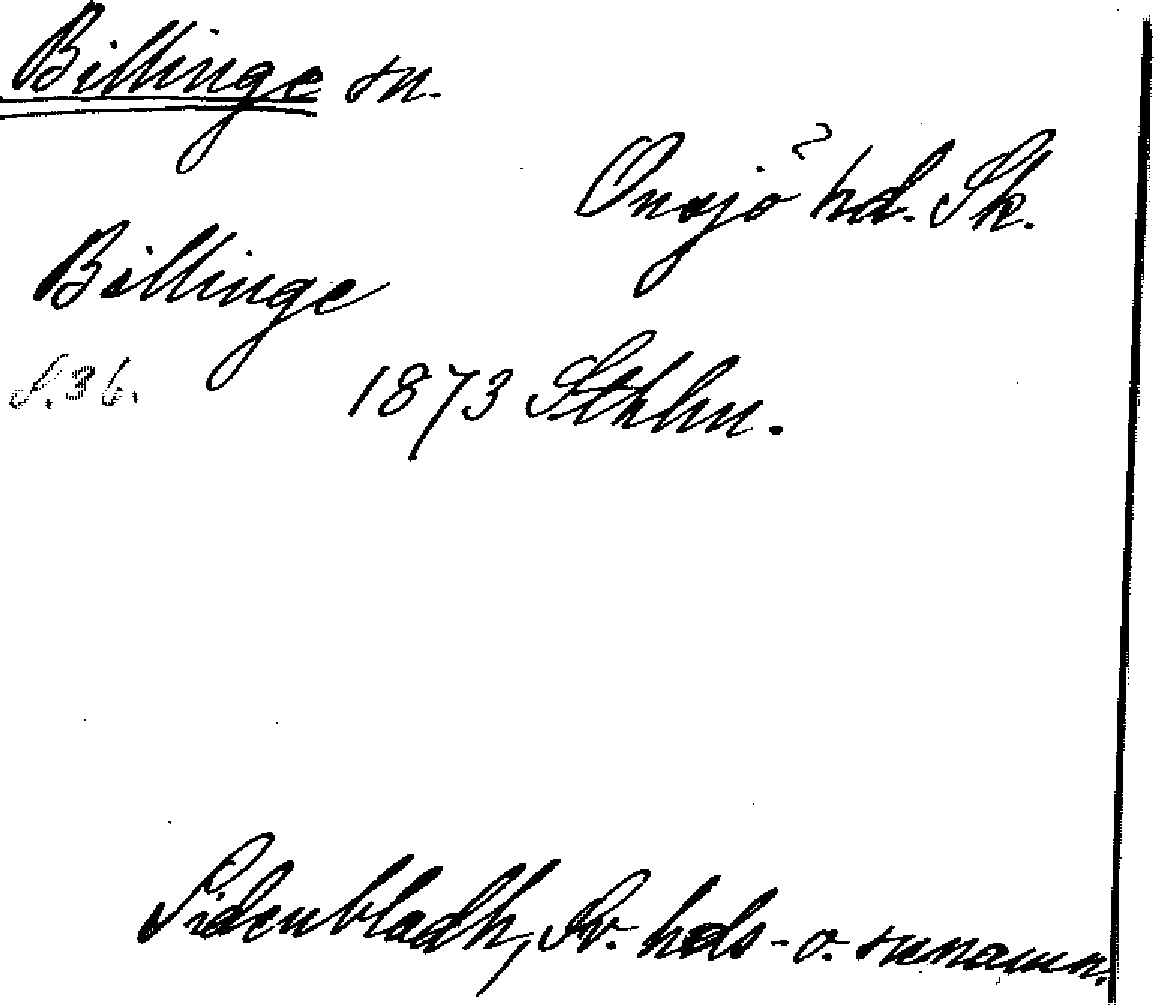 Billinge sn.
Onsjö hd. Sk.
Billinge
S. 36. 1873 Sthlm.
Sidenbladh, Sv. hds- o. snnamn.